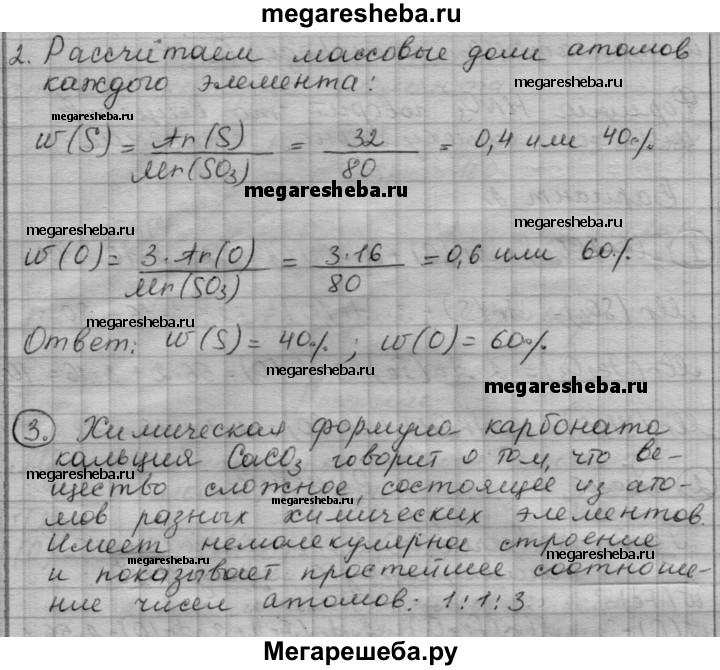 megaresheba.ru
2. Рассчитаем массовые доли атомов
каждого элемента:
megaresheba.ru
megaresheba.ru
w(S) = Ar(S) / Mr(SO3) = 32 / 80 = 0,4 или 40%
megaresheba.ru
megaresheba.ru
megaresheba.ru
w(O) = 3·Ar(O) / Mr(SO3) = 3·16 / 80 = 0,6 или 60%
megaresheba.ru
Ответ: w(S) = 40%; w(O) = 60%
megaresheba.ru
megaresheba.ru
3. Химическая формула карбоната
кальция CaCO3 говорит о том, что ве-
megaresheba.ru
megaresheba.ru
щество сложное, состоящее из ато-
megaresheba.ru
мов разных химических элементов.
Имеет немолекулярное строение
megaresheba.ru
megaresheba.ru
и показывает простейшее соотноше-
ние чисел атомов: 1:1:3
Мегарешеба.ру